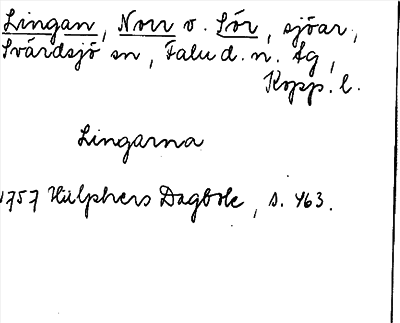 Lingan, Norr o. Sör, sjöar,
Svärdsjö sn, Falu d. n. tg,
Kopp. l.
Lingarna
1757 Hülphers Dagbok, s. 463.